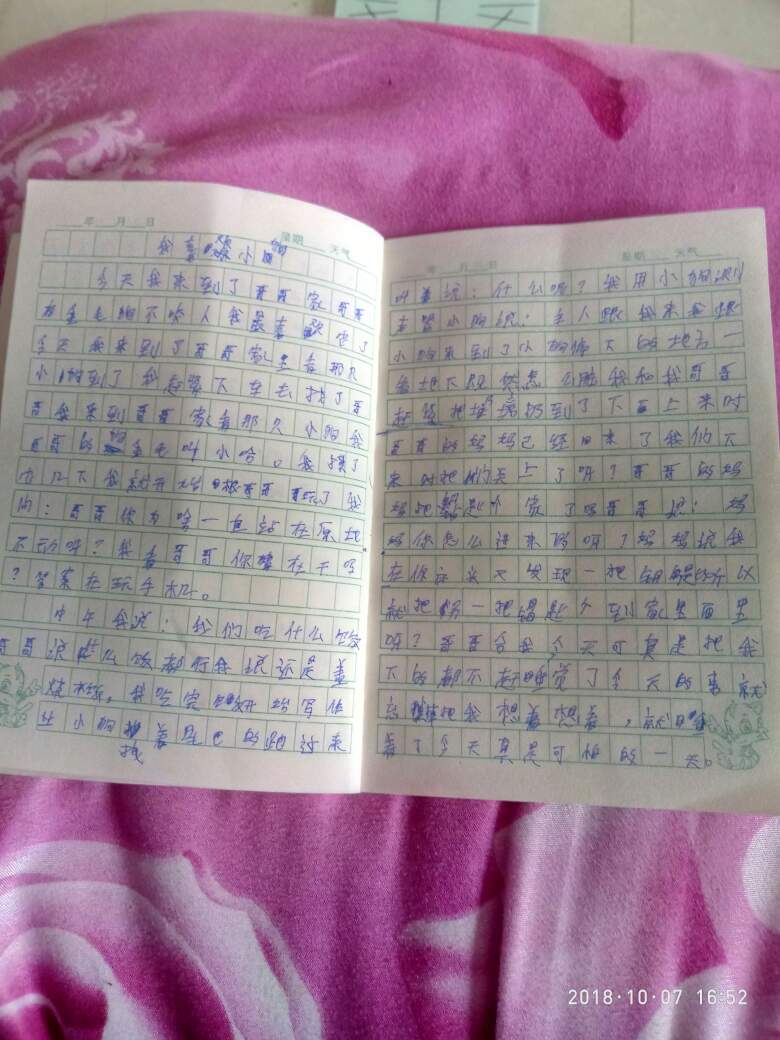 年 月 日 星期 天气
我喜欢小狗
今天我来到了哥哥家哥哥
有金毛狗不咬人我最喜欢它了
今天我来到了哥哥家里看那只
小狗到了我赶紧下车去找了哥
哥我来到哥哥家看那只小狗我
哥哥的狗金毛叫小哈。我摸了
几下我就开始跟哥哥玩了我
问：哥哥你为啥一直站在原地
不动呀？我看哥哥你在干吗
？答案在玩手机。
中午我说：我们吃什么饭
哥哥说什么饭都行我说还是盖
烧，我吃完饭开始写作
业小狗找着尾巴的跑过来
年 月 日 星期 天气
叫着说：什么呢？我用小狗
小狗说：主人跟我来我跟
小狗来到了小狗下的地方一
看地下既然我和我哥哥
赶紧把扔到了下面上来时
哥哥的妈妈已经回来了我们下
来时把门关上了呀？哥哥的妈
妈把家了吗哥哥说：妈
妈你怎么进来的呀？妈妈说我
在你这头天发现一把钥匙所以
就把一把钥匙个到家里面里
呀？哥哥今天可真是把我
下的都不赶睡觉了今天的事就
忘把我想着想着，就睡
着了今天真是可怕的一天。
2018·10·07 16:52